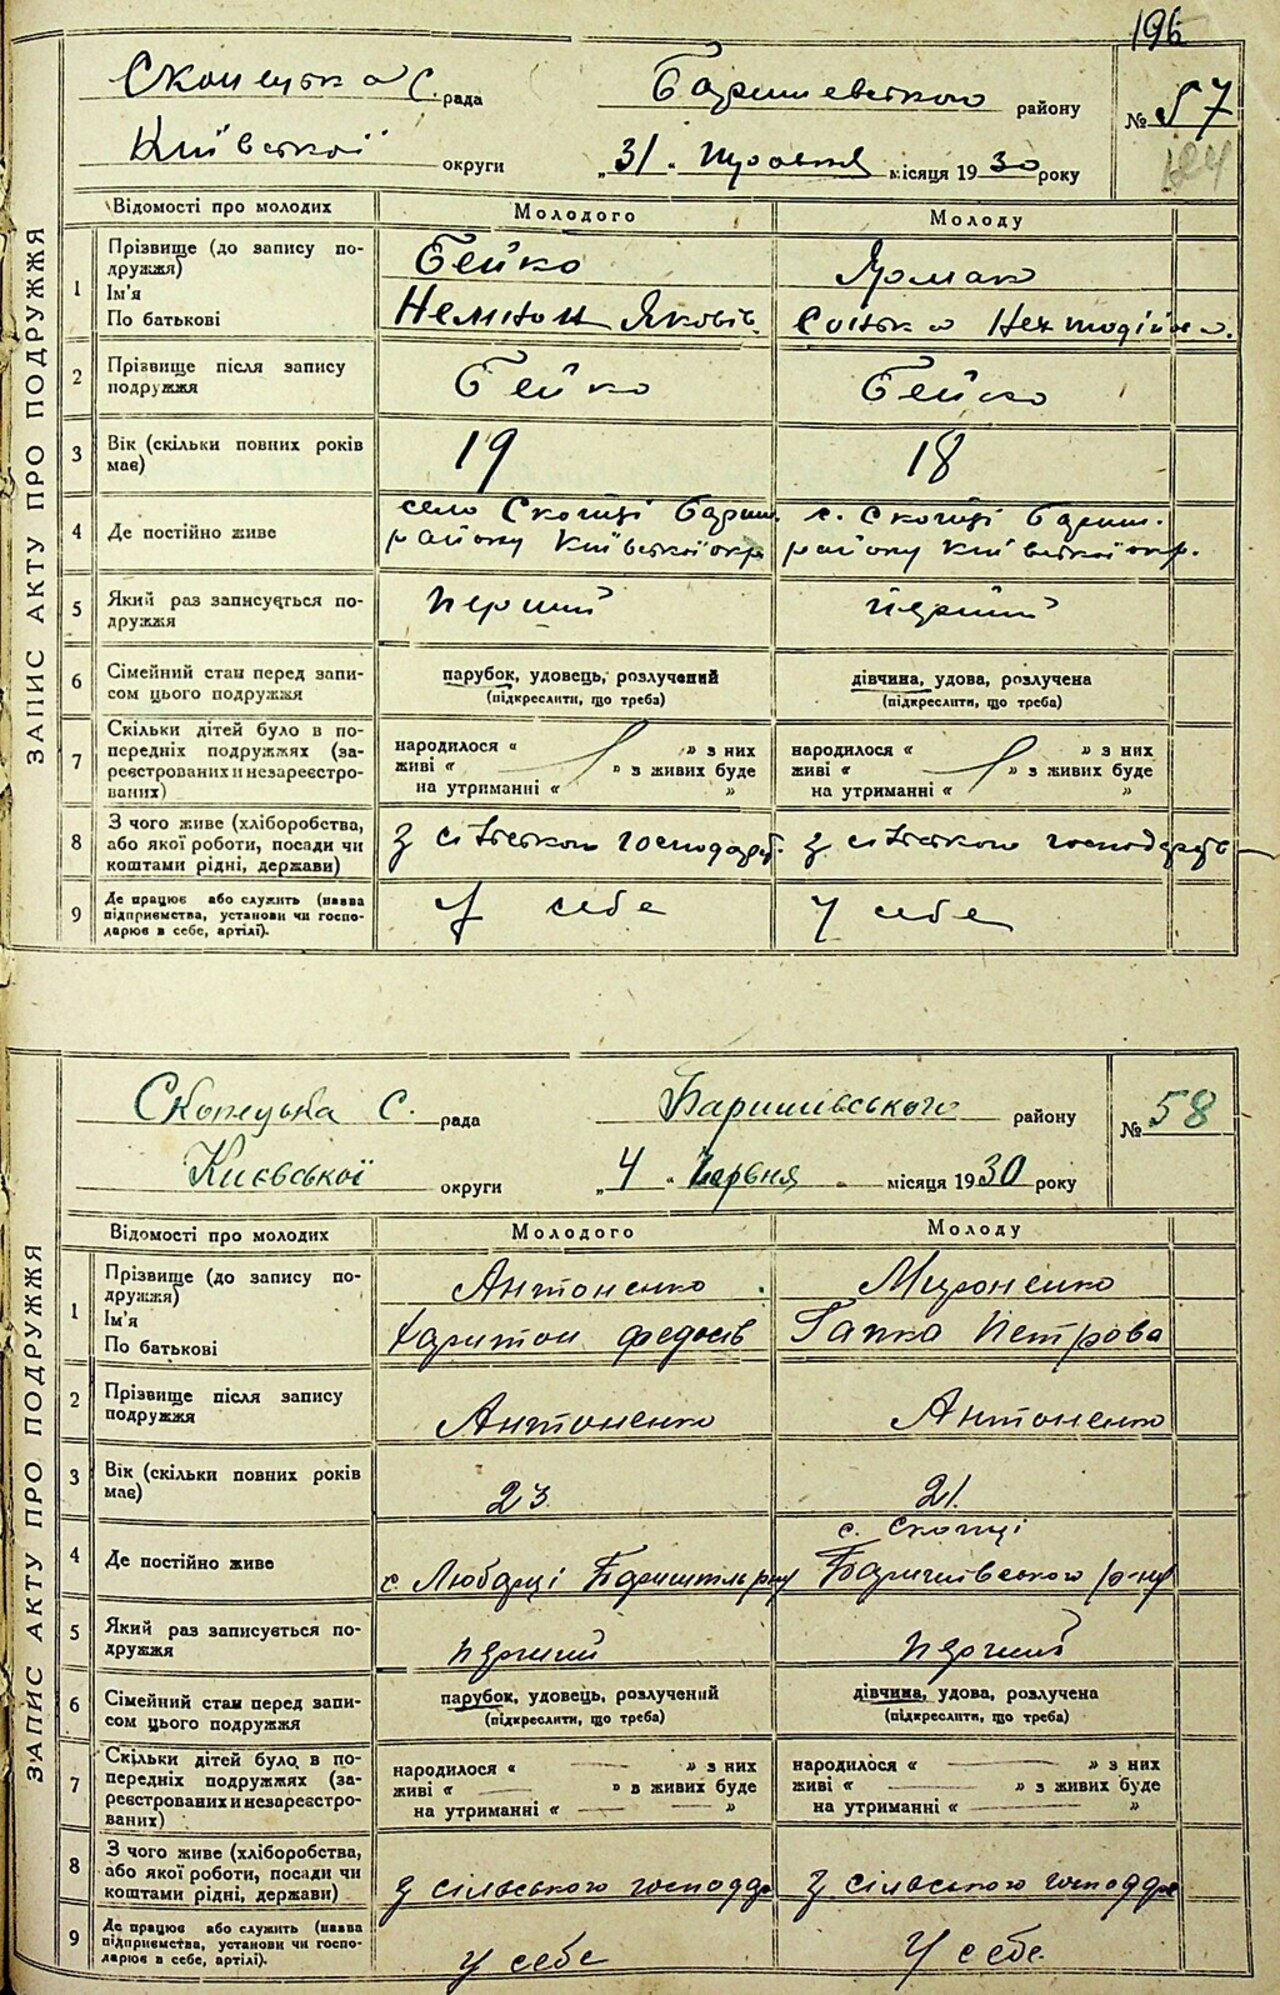 196
Скопецька С. рада Баришевського району № 57
124
Київської округи „31. травня місяця 1930 року
ЗАПИС АКТУ ПРО ПОДРУЖЖЯ
Відомості про молодих Молодого Молоду
1 Прізвище (до запису по- Бейко Ярмак
дружжя)
Ім'я
По батькові Яковів.
2 Прізвище після запису Бейко Бейко
подружжя
3 Вік (скільки повних років 19 18
має)
4 Де постійно живе село Скопці Бариш. с. Скопці Бариш.
району Київської окр. району Київської окр.
5 Який раз записується по- перший перший
дружжя
6 Сімейний стан перед запи- парубок, удовець, розлучений дівчина, удова, розлучена
сом цього подружжя (підкреслити, що треба) (підкреслити, що треба)
7 Скільки дітей було в по- народилося « » з них народилося « » з них
передніх подружжях (за- живі « » з живих буде живі « » з живих буде
реєстрованих и незареєстро- на утриманні « » на утриманні « »
ваних)
8 З чого живе (хліборобства, З сільського господар. З сільського господарств
або якої роботи, посади чи
коштами рідні, держави)
9 Де працює або служить (назва У себе У себе
підприємства, установи чи госпо-
дарює в себе, артілі).
Скопецька С. рада Баришівського району № 58
Києвської округи „4 „ Червня місяця 1930 року
ЗАПИС АКТУ ПРО ПОДРУЖЖЯ
Відомості про молодих Молодого Молоду
1 Прізвище (до запису по- Антоненко Мироненко
дружжя)
Ім'я
По батькові Харитон Федосів Гапка Петрова
2 Прізвище після запису Антоненко Антоненко
подружжя
3 Вік (скільки повних років 23 21.
має)
4 Де постійно живе с. Скопці
с. Любарці Баришівського р-ну
5 Який раз записується по- перший перший
дружжя
6 Сімейний стан перед запи- парубок, удовець, розлучений дівчина, удова, розлучена
сом цього подружжя (підкреслити, що треба) (підкреслити, що треба)
7 Скільки дітей було в по- народилося « — » з них народилося « — » з них
передніх подружжях (за- живі « — » в живих буде живі « — » з живих буде
реєстрованих и незареєстро- на утриманні « — » на утриманні « — »
ваних)
8 З чого живе (хліборобства, З сільського господар З сільського господар
або якої роботи, посади чи
коштами рідні, держави)
9 Де працює або служить (назва У себе У себе.
підприємства, установи чи госпо-
дарює в себе, артілі).